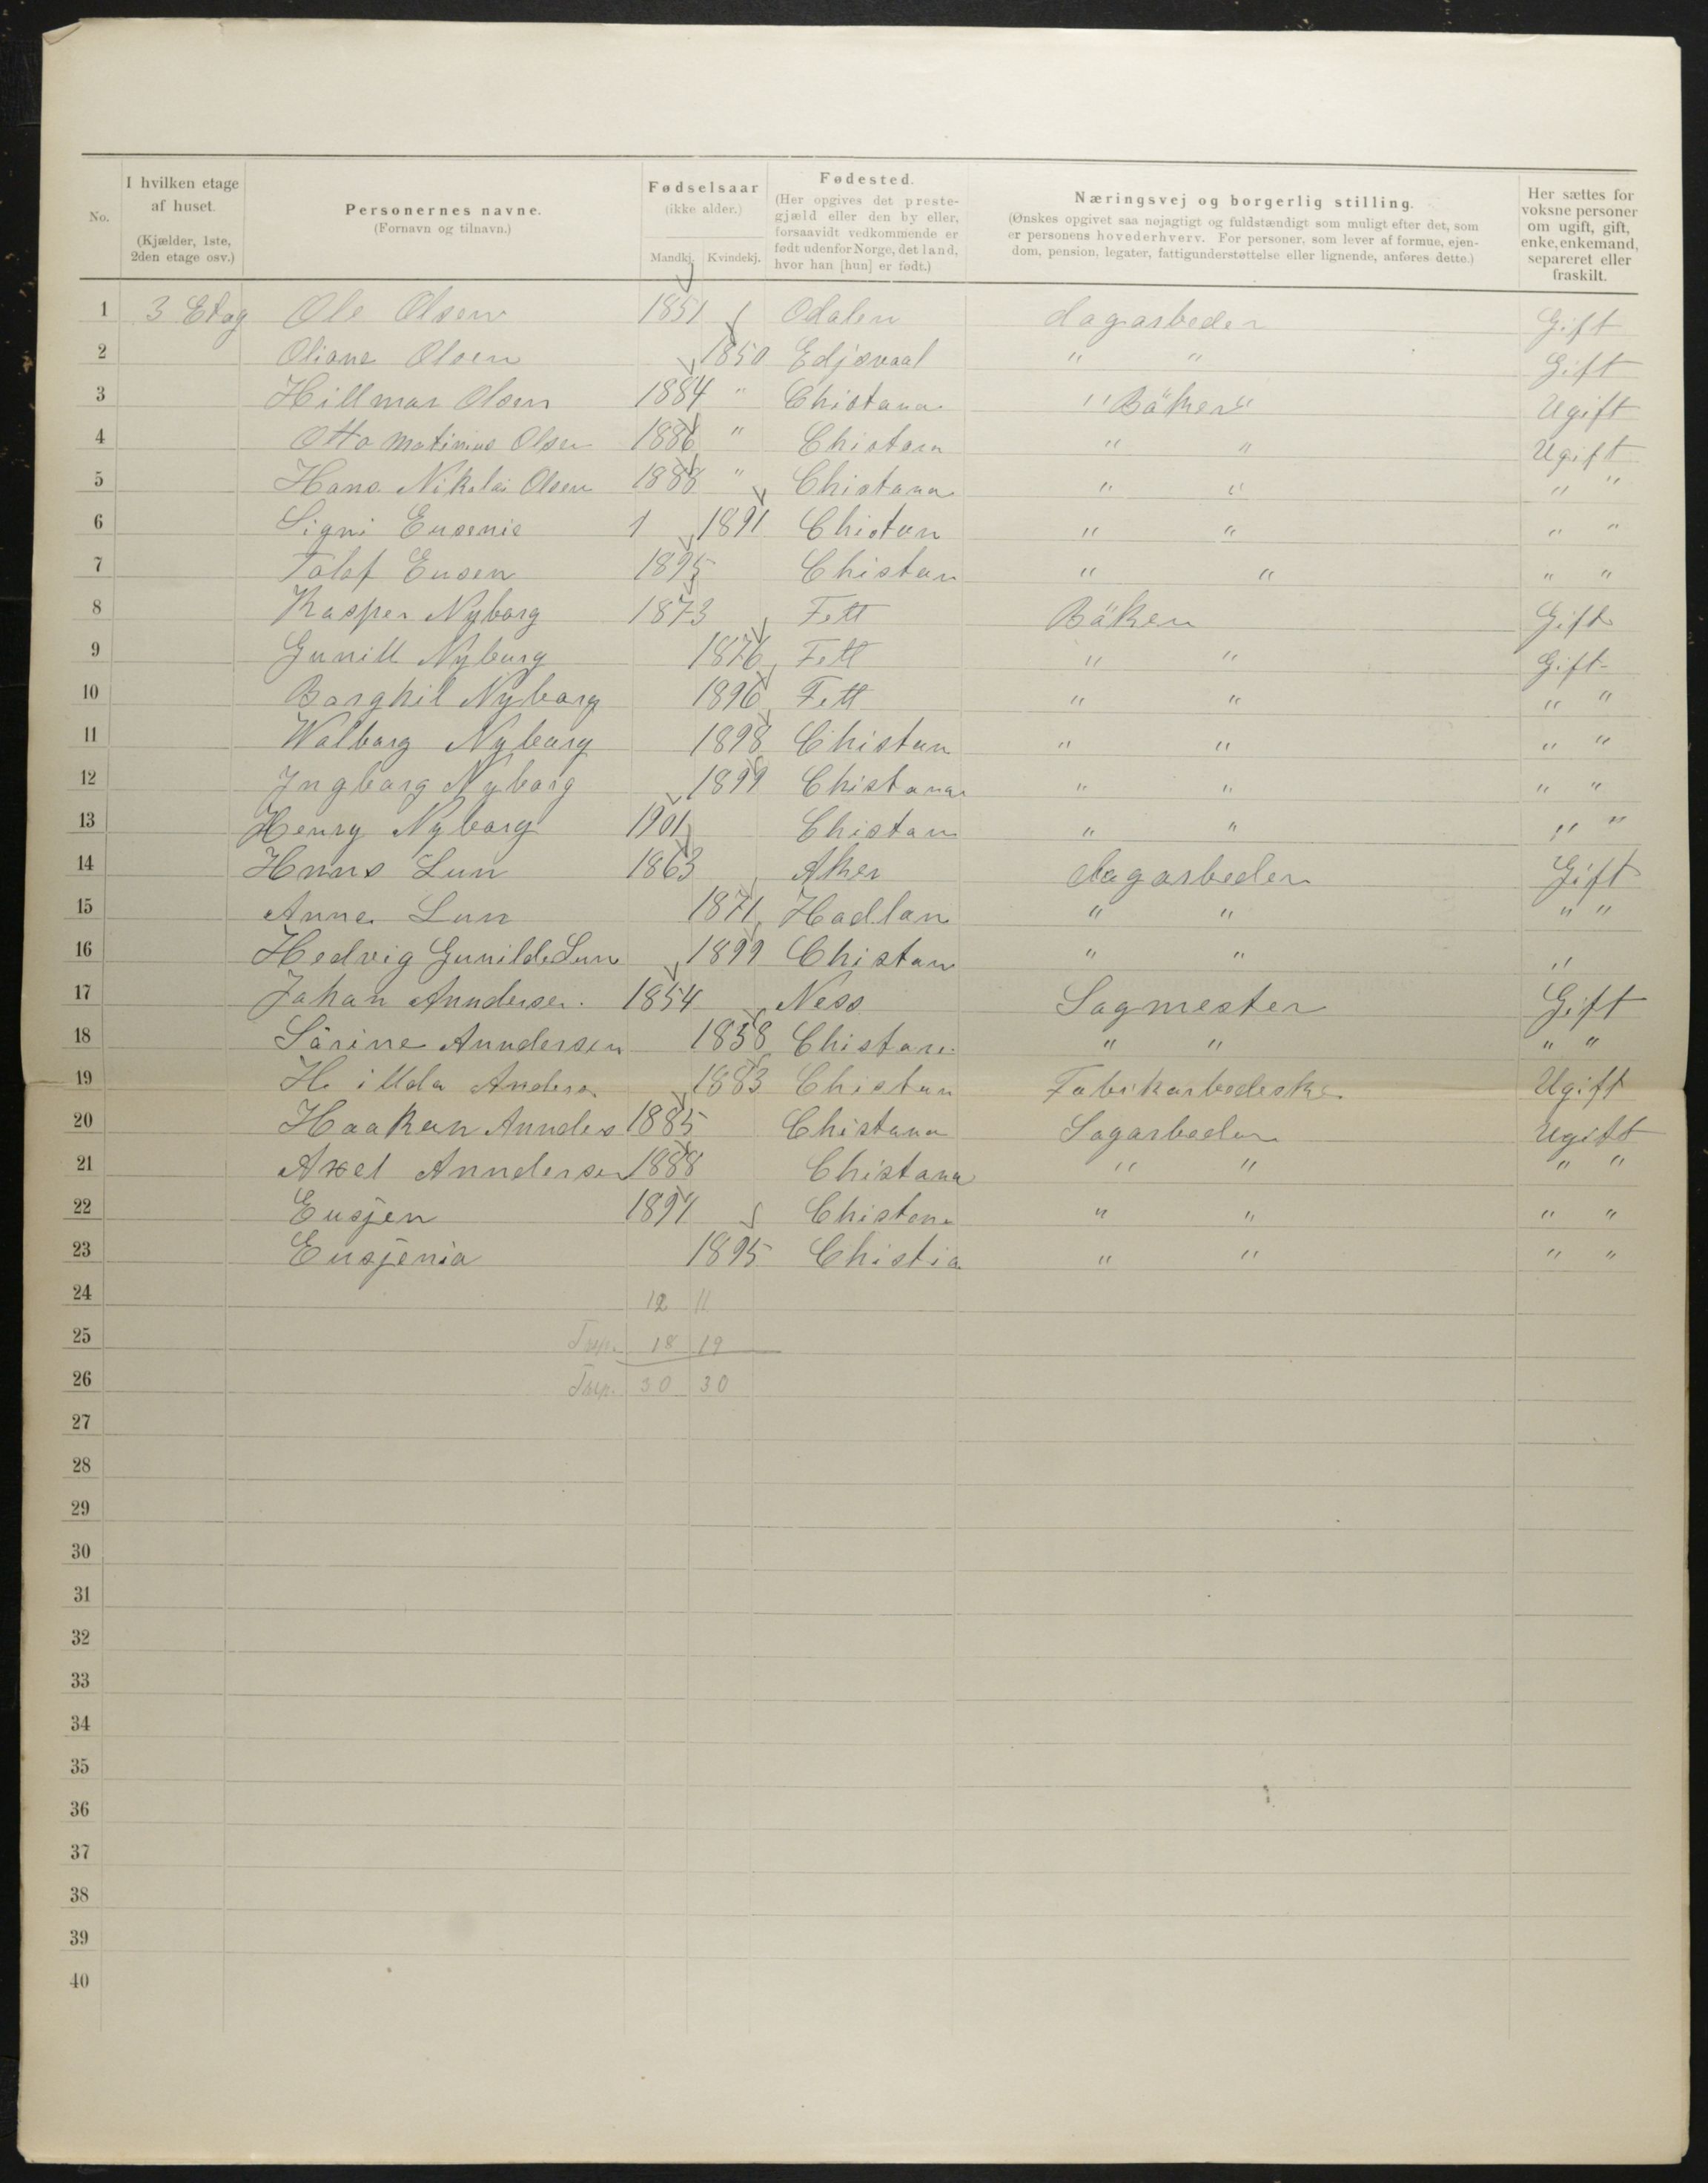 No. I hvilken etage af huset. (Kjælder, 1ste, 2den etage osv.) Personernes navne. (Fornavn og tilnavn.) Fødselsaar (ikke alder.) Mandkj. Kvindekj. Fødested. (Her opgives det prestegjæld eller den by eller, forsaavidt vedkommende er født udenfor Norge, det land, hvor han [hun] er født.) Næringsvej og borgerlig stilling. (Ønskes opgivet saa nøjagtigt og fuldstændigt som muligt efter det, som er personens hovederhverv. For personer, som lever af formue, ejendom, pension, legater, fattigunderstøttelse eller lignende, anføres dette.) Her sættes for voksne personer om ugift, gift, enke, enkemand, separeret eller fraskilt.
1 3 Etag Ole Olsen 1851 Odalen dagarbeder Gift
2 Oliane Olsen 1850 Edjsvaal " " Gift
3 Hillmar Olsen 1884 " Chistana " Bäker " Ugift
4 Otto Matinius Olsen 1886 " Chistan " " Ugift
5 Hans Nikolai Olsen 1888 " Chistana " " " "
6 Signi Eugenie 1 1891 Chistan " " " "
7 Tolof Eusen 1895 Chistan " " " "
8 Kasper Nyborg 1873 Fett Bäker Gift
9 Gunill Nyborg 1876 Fett " " Gift
10 Borghil Nyborg 1896 Fett " " " "
11 Walborg Nyborg 1898 Chistan " " " "
12 Ingborg Nyborg 1899 Chistana " " " "
13 Henry Nyborg 1901 Chistan " " " "
14 Hans Lun 1863 Aker dagarbeder Gift
15 Anne Lun 1871 Hadlan " " " "
16 Hedvig Gunilde Lun 1899 Chistan " " "
17 Johan Anndersen. 1854 Ness Sagmester Gift
18 Särine Anndersen 1858 Chistan " " " "
19 Hillda Anders 1883 Chistan Fabikarbedeske Ugift
20 Haaken Annders 1885 Chistana Sagarbeder Ugift
21 Axel Anndersen 1888 Chistana " " " "
22 Eusjen 1891 Chistana " " " "
23 Eusjenia 1895 Chistia " " " "
24 12 11
25 18 19
26 30 30
27
28
29
30
31
32
33
34
35
36
37
38
39
40